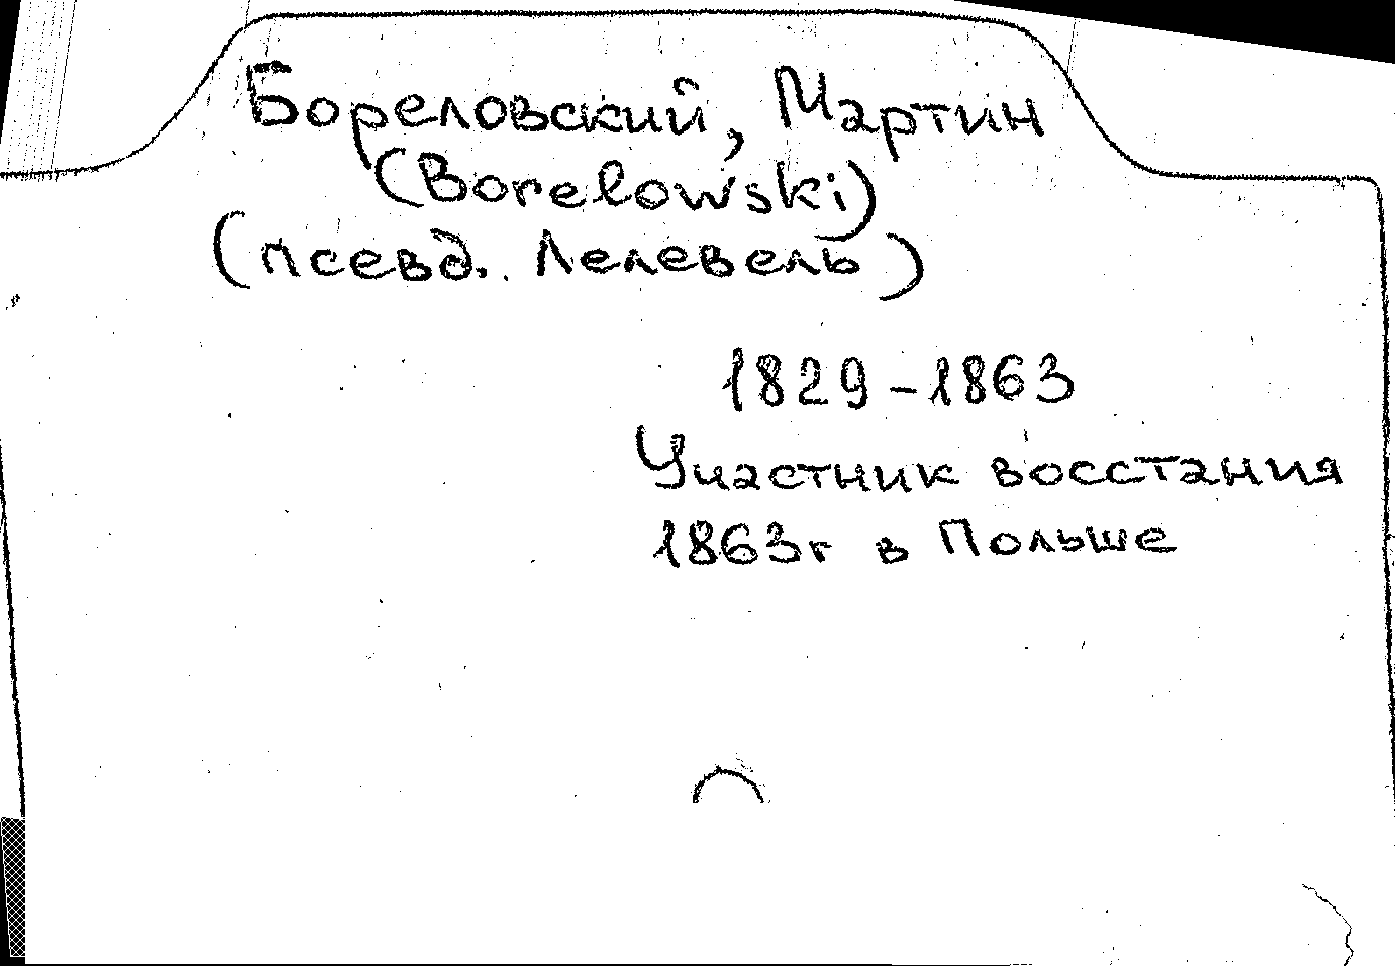 Бореловский, Мартин
(Borelowski)
(псевд. Лелевель)
1829-1863
Участник восстания
1863г в Польше